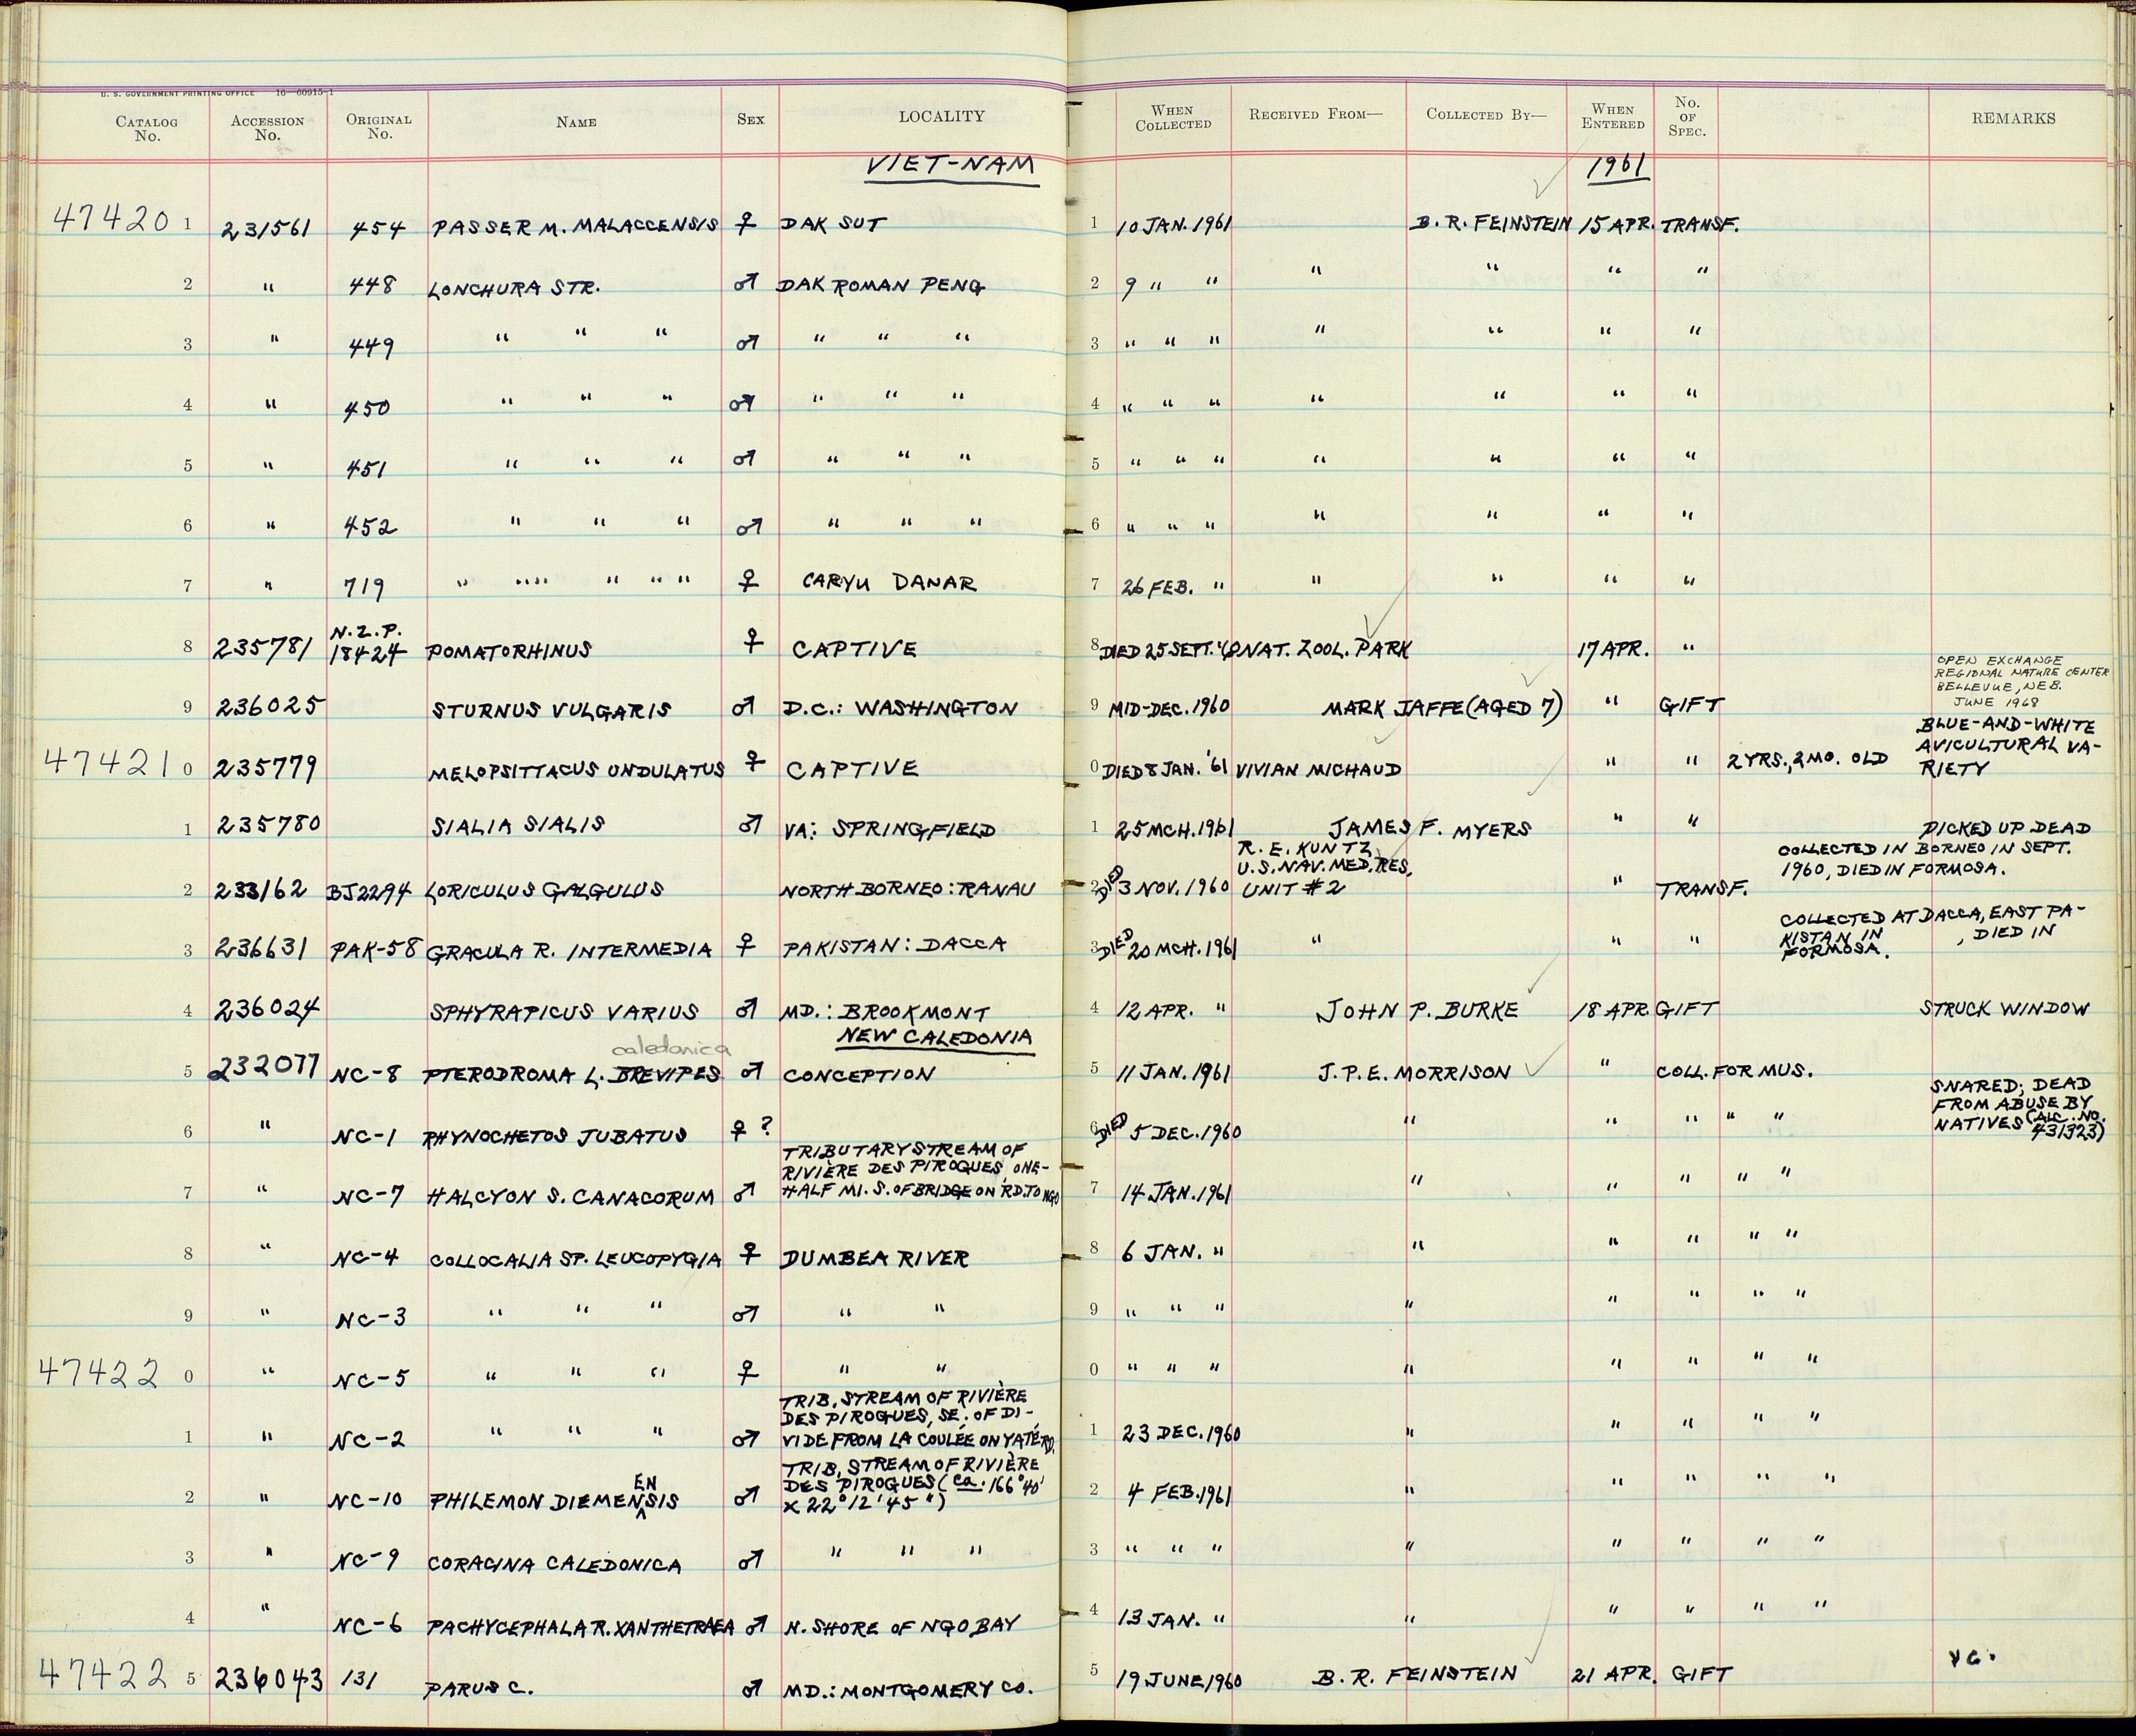 U. S. GOVERNMENT PRINTING OFFICE 16—60915-1
CATALOG No. ACCESSION No. ORIGINAL No. NAME SEX LOCALITY WHEN COLLECTED RECEIVED FROM— COLLECTED BY— WHEN ENTERED No. OF SPEC. REMARKS
VIET-NAM 1961
47420 1 231561 454 PASSER M. MALACCENSIS ♀ DAK SUT 1 10 JAN. 1961 B. R. FEINSTEIN 15 APR. TRANSF.
2 " 448 LONCHURA STR. ♂ DAK ROMAN PENG 2 9 " " " " " "
3 " 449 " " " ♂ " " " 3 " " " " " " "
4 " 450 " " " ♂ " " " 4 " " " " " " "
5 " 451 " " " ♂ " " " 5 " " " " " " "
6 " 452 " " " ♂ " " " 6 " " " " " " "
7 " 719 " " " " " " ♀ CARYU DANAR 7 26 FEB. " " " " "
8 235781 N.Z.P. 18424 POMATORHINUS ♀ CAPTIVE 8 DIED 25 SEPT. '60 NAT. ZOOL. PARK 17 APR. "
OPEN EXCHANGE
REGIONAL NATURE CENTER
BELLEVUE, NEB.
JUNE 1968
9 236025 STURNUS VULGARIS ♂ D.C.: WASHINGTON 9 MID-DEC. 1960 MARK JAFFE (AGED 7) " GIFT
47421 0 235779 MELOPSITTACUS UNDULATUS ♀ CAPTIVE 0 DIED 8 JAN. '61 VIVIAN MICHAUD " " 2 YRS., 2 MO. OLD
BLUE-AND-WHITE
AVICULTURAL VA-
RIETY
1 235780 SIALIA SIALIS ♂ VA: SPRINGFIELD 1 25 MCH. 1961 JAMES F. MYERS " " PICKED UP DEAD
2 233162 BJ2294 LORICULUS GALGULUS NORTH BORNEO: RANAU 2 DIED 3 NOV. 1960
R. E. KUNTZ
U.S. NAV. MED. RES.
UNIT #2 " TRANSF.
COLLECTED IN BORNEO IN SEPT.
1960, DIED IN FORMOSA.
3 236631 PAK-58 GRACULA R. INTERMEDIA ♀ PAKISTAN: DACCA 3 DIED 20 MCH. 1961 " " "
COLLECTED AT DACCA, EAST PA-
KISTAN IN , DIED IN
FORMOSA.
4 236024 SPHYRAPICUS VARIUS ♂ MD.: BROOKMONT 4 12 APR. " JOHN P. BURKE 18 APR. GIFT STRUCK WINDOW
NEW CALEDONIA
caledonica
5 232077 NC-8 PTERODROMA L. BREVIPES ♂ CONCEPTION 5 11 JAN. 1961 J. P. E. MORRISON " COLL. FOR MUS.
6 " NC-1 RHYNOCHETOS JUBATUS ♀ ? 6 DIED 5 DEC. 1960 " " " " "
SNARED; DEAD
FROM ABUSE BY
NATIVES (ALC. NO. 431323)
7 " NC-7 HALCYON S. CANACORUM ♂
TRIBUTARY STREAM OF
RIVIÈRE DES PIROGUES, ONE-
HALF MI. S. OF BRIDGE ON RD. TO NGO
7 14 JAN. 1961 " " " " "
8 " NC-4 COLLOCALIA SP. LEUCOPYGIA ♀ DUMBEA RIVER 8 6 JAN. " " " " " "
9 " NC-3 " " " ♂ " " 9 " " " " " " " "
47422 0 " NC-5 " " " ♀ " " 0 " " " " " " " "
1 " NC-2 " " " ♂
TRIB. STREAM OF RIVIÈRE
DES PIROGUES, SE. OF DI-
VIDE FROM LA COULÉE ON YATÉ RD.
1 23 DEC. 1960 " " " " "
2 " NC-10 PHILEMON DIEMENENSIS ♂
TRIB. STREAM OF RIVIÈRE
DES PIROGUES (ca. 166°40'
x 22°12'45")
2 4 FEB. 1961 " " " " "
3 " NC-9 CORACINA CALEDONICA ♂ " " " 3 " " " " " " " "
4 " NC-6 PACHYCEPHALA R. XANTHETRAEA ♂ N. SHORE OF NGO BAY 4 13 JAN. " " " " " "
47422 5 236043 131 PARUS C. ♂ MD.: MONTGOMERY CO. 5 19 JUNE 1960 B. R. FEINSTEIN 21 APR. GIFT